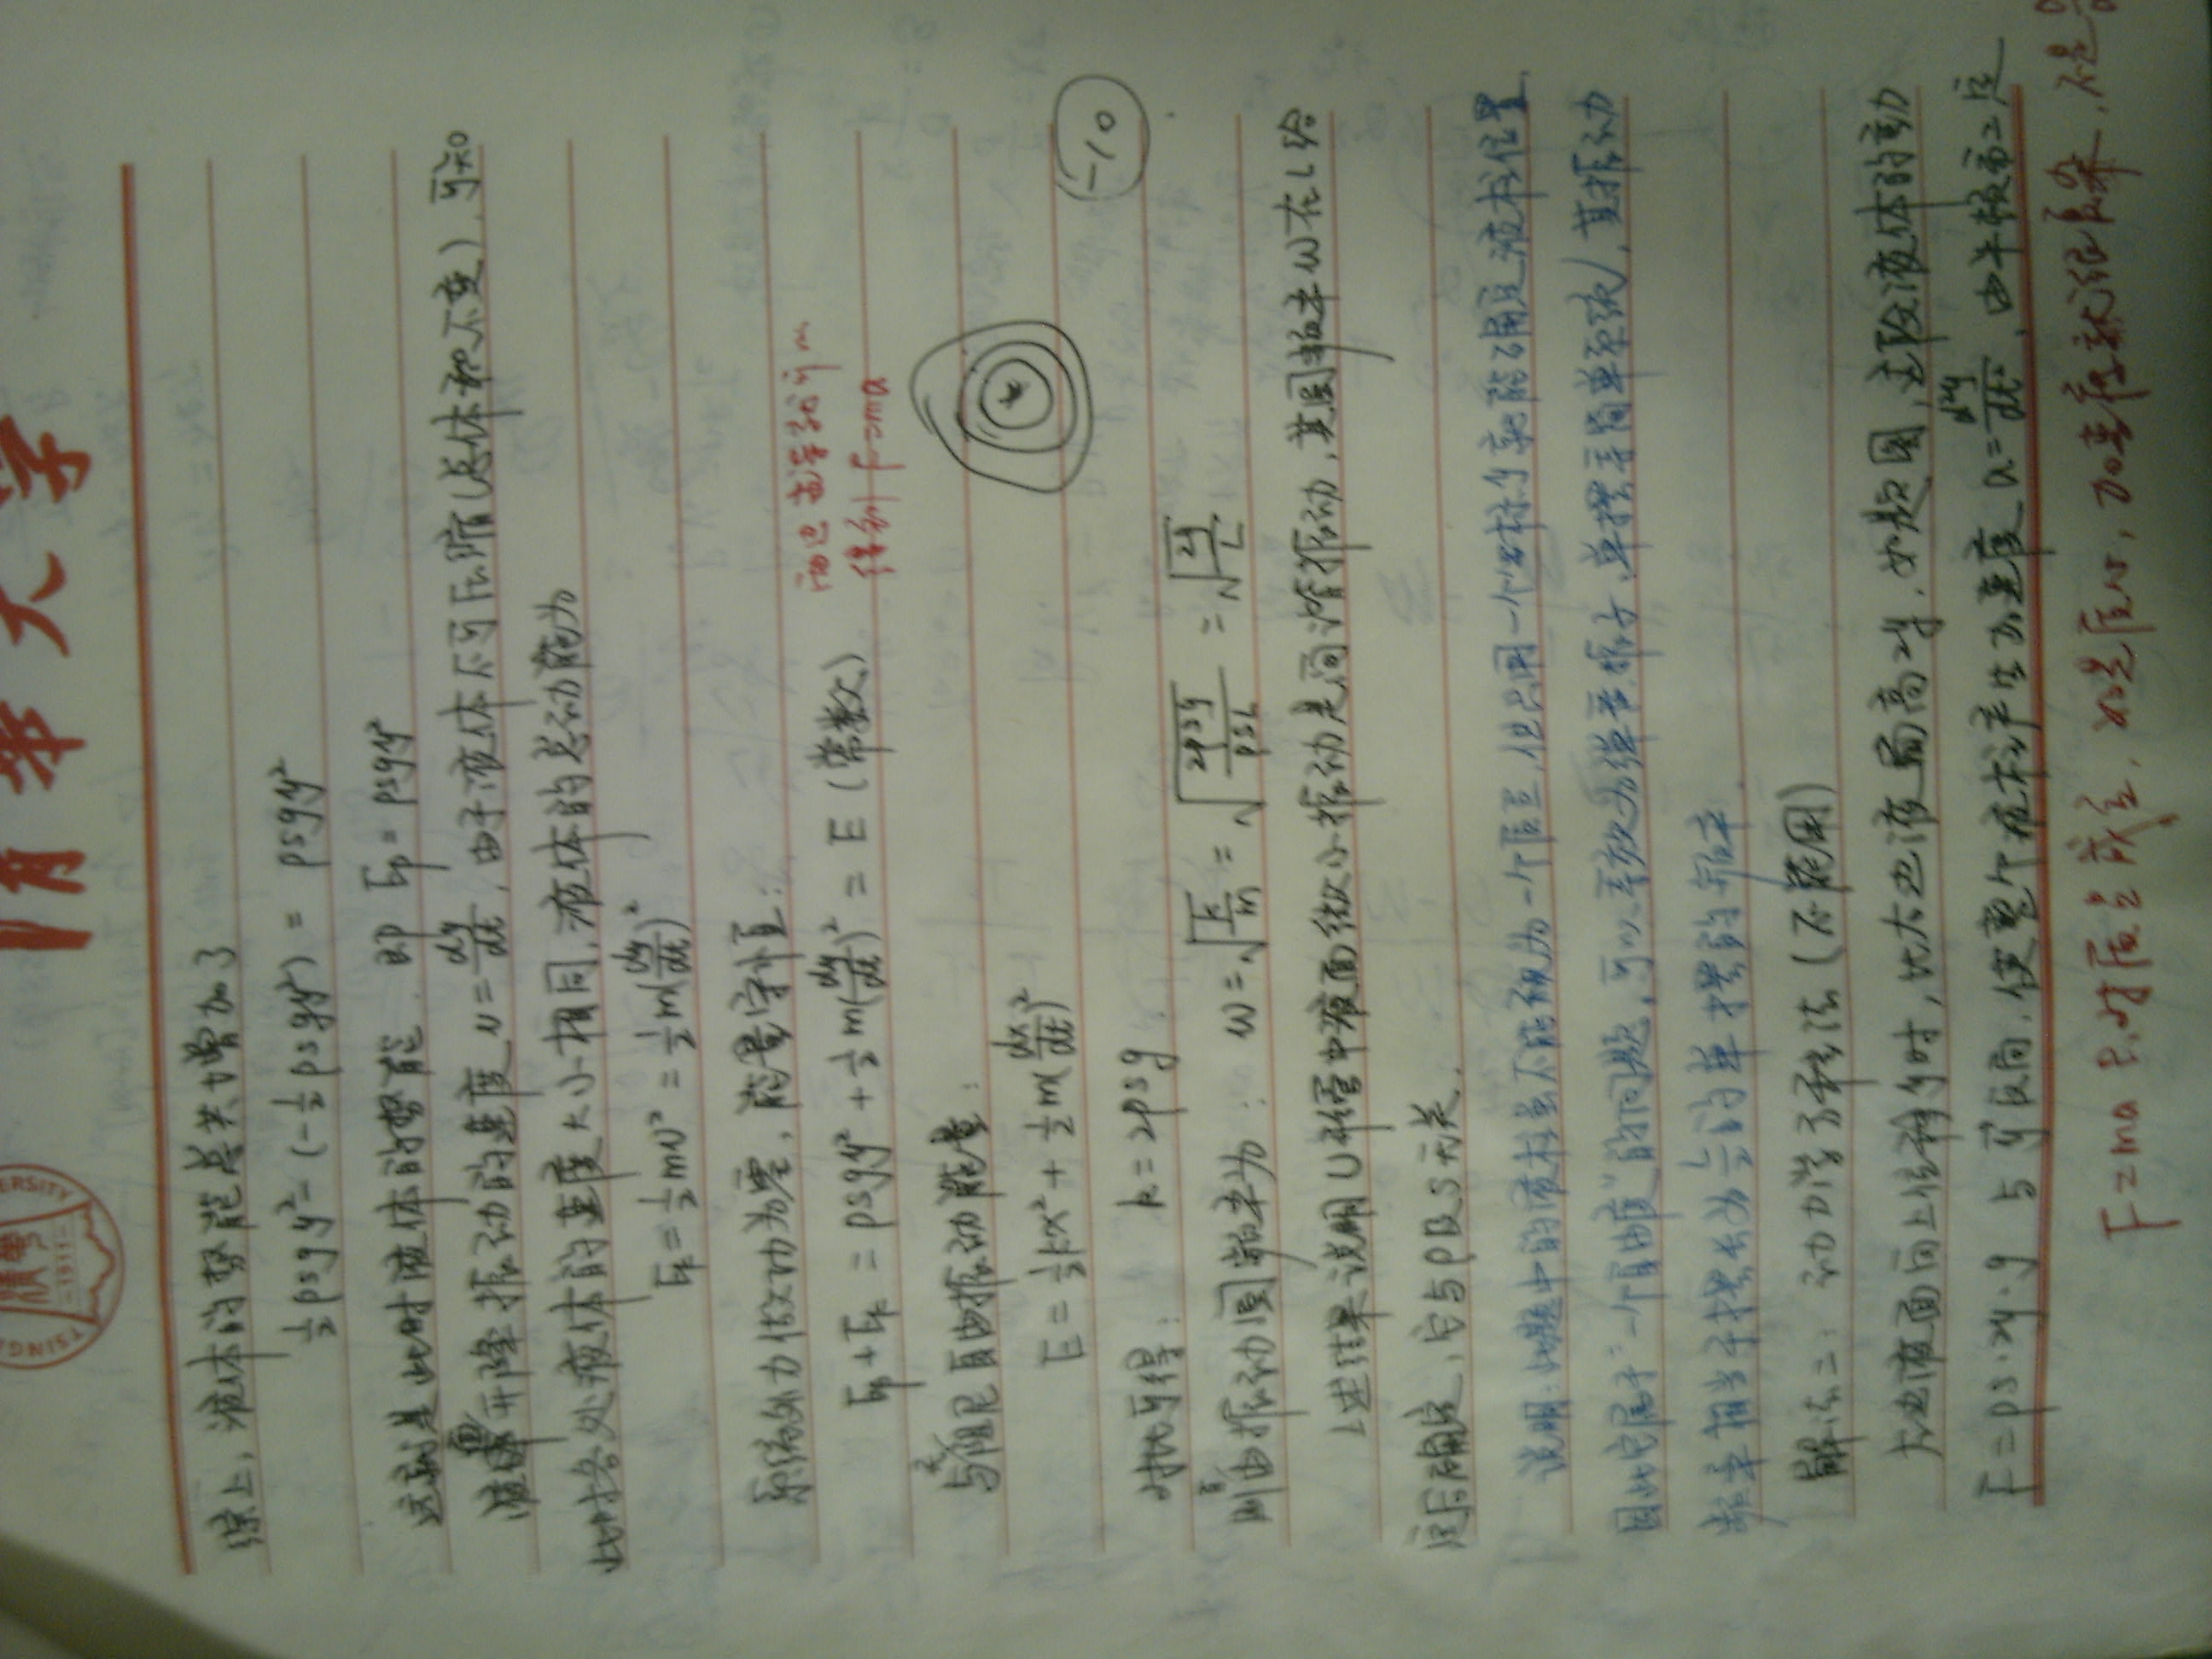 清华大学
-1911-
综上，液体的势能总共增加了
½ρsgy² - (-½ρsgy²) = ρsgy²
这就是此时液体的势能. 即 Ep = ρsgy²
液面升降振动的速度 v = dy/dt, 由于液体不可压缩(总体积不变), 可知
此时各处液体的速度大小相同, 液体的总动能为
Ek = ½mv² = ½m(dy/dt)²
系统外力做功为零, 能量守恒:
Ep + Ek = ρsgy² + ½m(dy/dt)² = E (常数)
两边求导就可以
得到 F=ma
与无阻尼自由振动能量:
E = ½kx² + ½m(dx/dt)²
-10
对比可得: k = 2ρsg.
则自由振动圆频率为: ω = √(k/m) = √(2ρsg/ρsL) = √(2g/L)
上述结果说明U形管中液面微小振动是简谐振动, 其圆频率ω在L给
定后确定, 它与ρ及s无关.
说明: 此题中的液柱虽不能视为一个质点, 但只用一个坐标y就能确定液柱位置,
因此它属于"一个自由度"的问题, 可以等效为弹簧振子、单摆等简单系统, 其振动
频率相当于摆长为L/2的单摆的频率.
解法二: 动力学方程法 (不能用)
液面向上位移y时, 比左边液面高2y, 如题图, 这段液体的重力
F = ρs·2y·g 与 y 反向, 使整个液柱产生加速度 a = d²y/dt², 由牛顿第二定
F=ma 只对质点成立, 如是质心, 加速度就很复杂, 不是